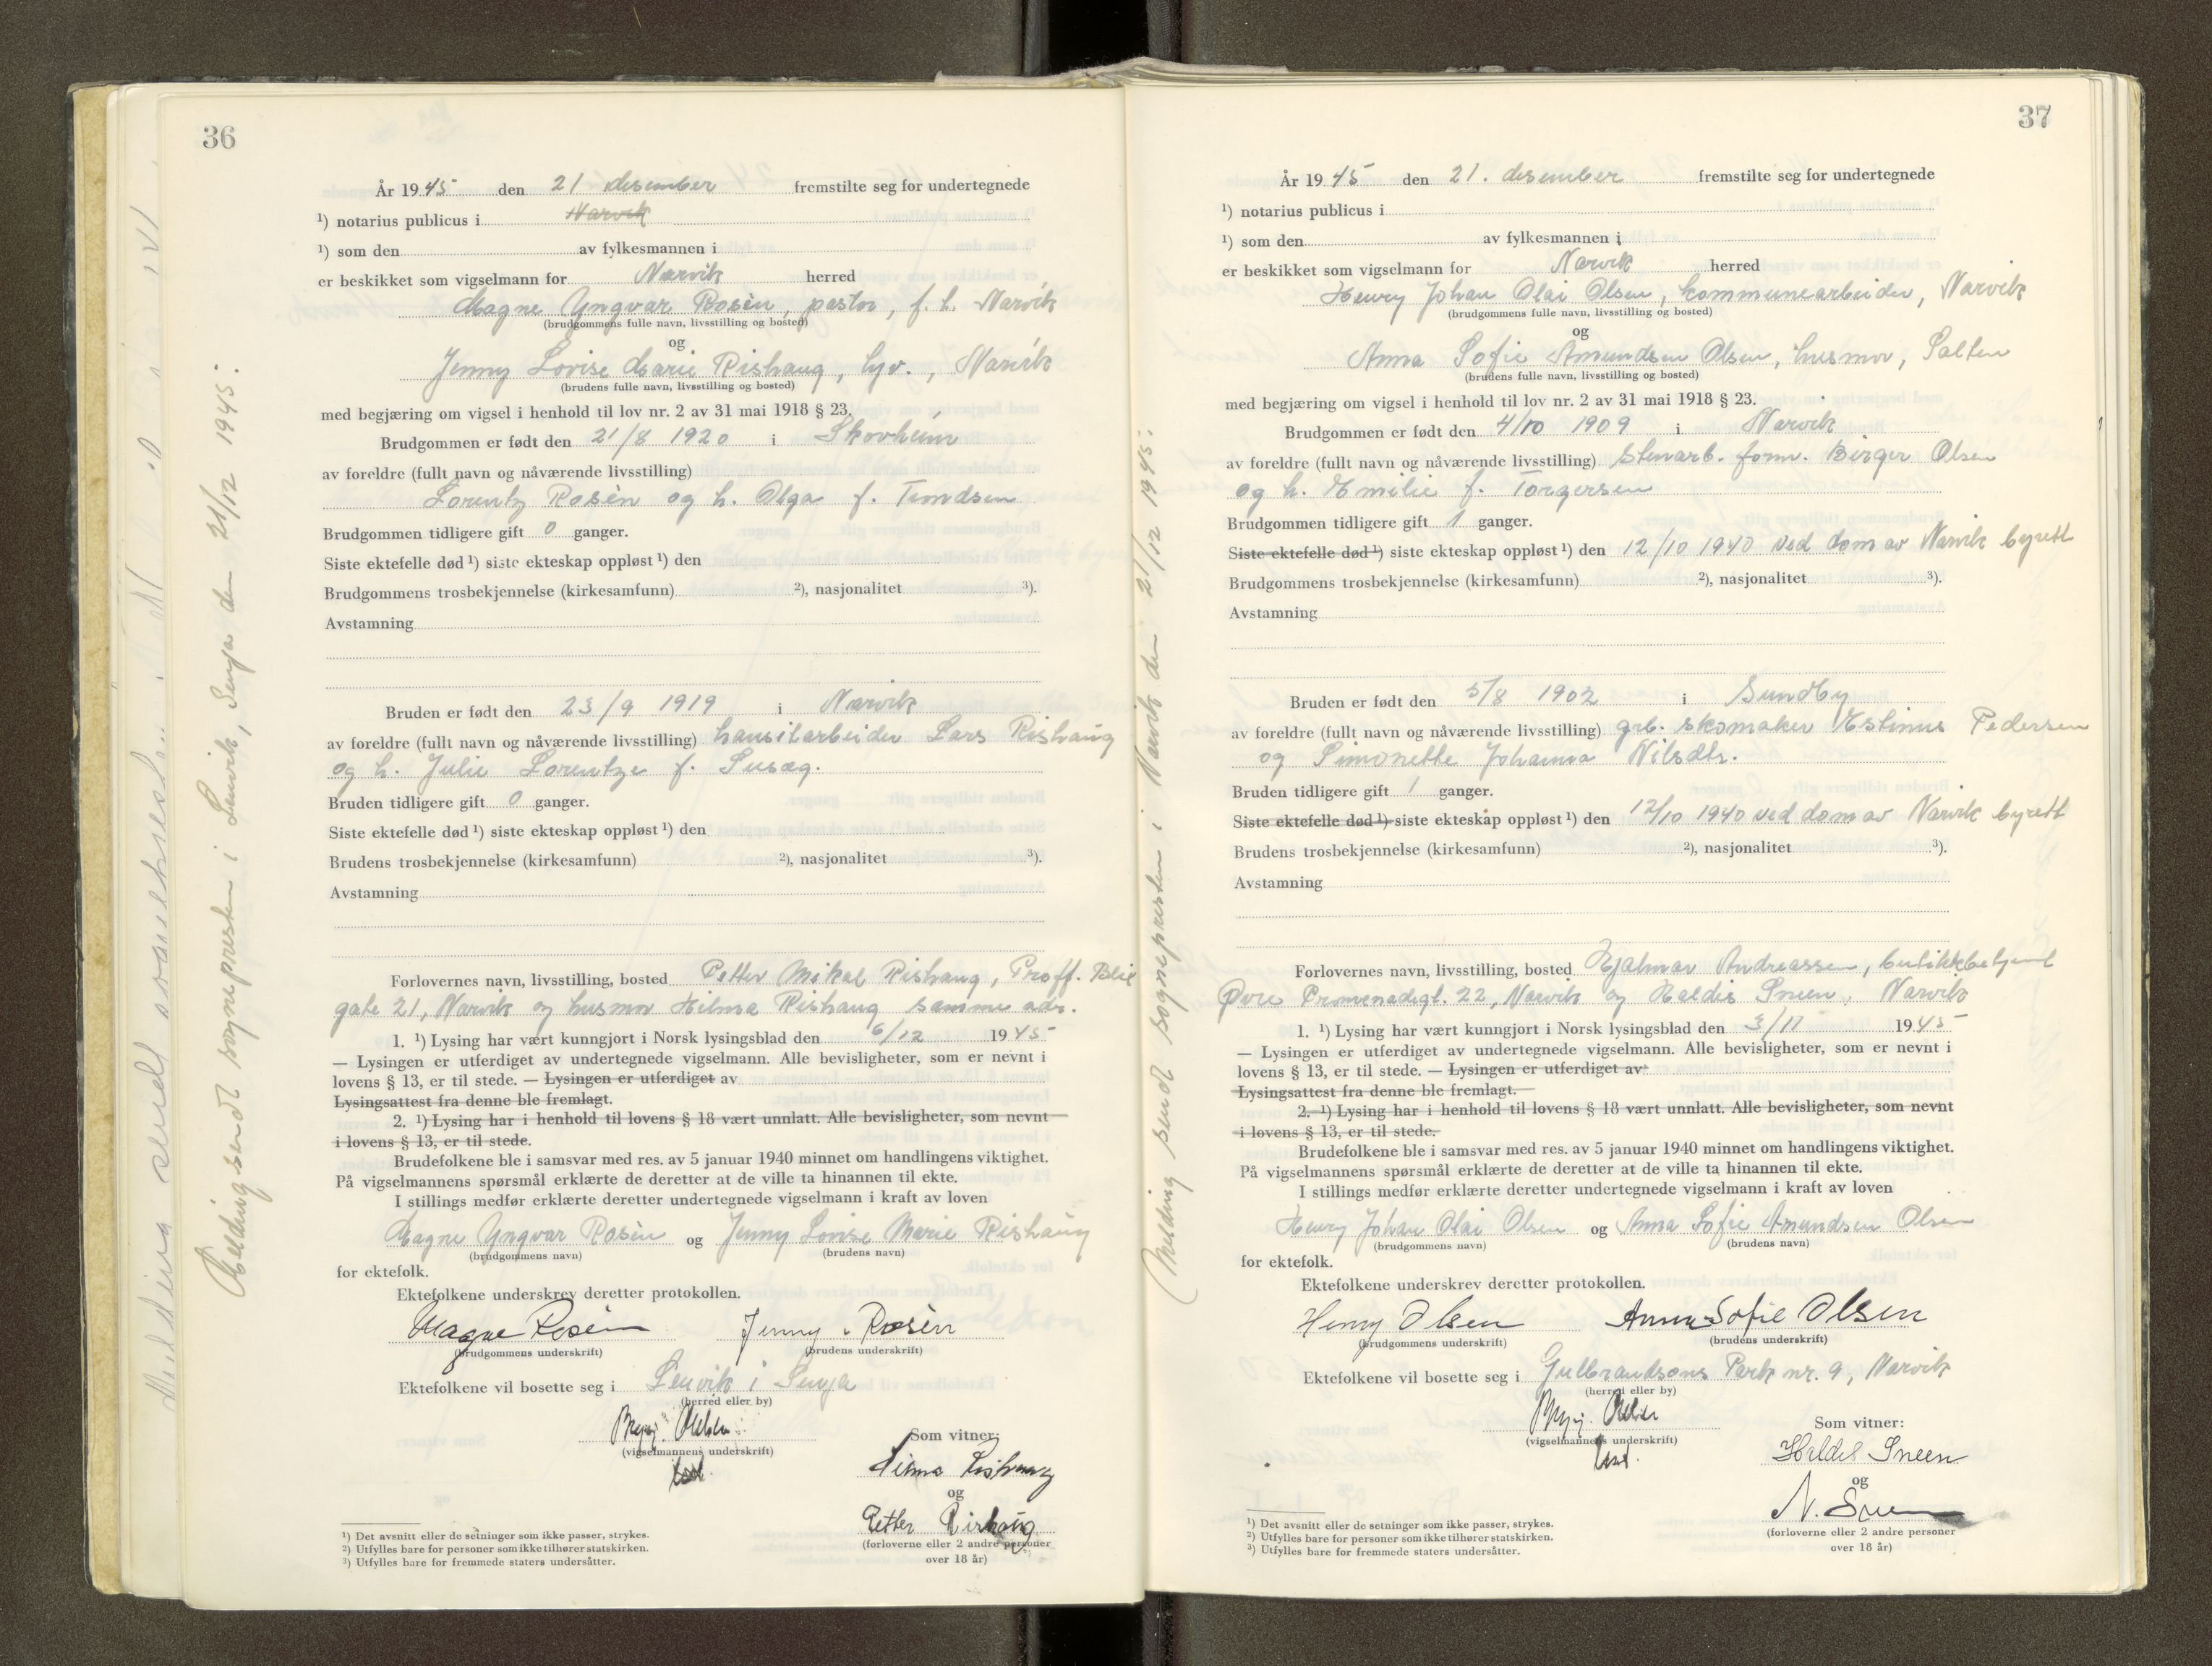 36
År 1945 den 21 desember fremstilte seg for undertegnede
¹) notarius publicus i Narvik
¹) som den av fylkesmannen i
er beskikket som vigselmann for Narvik herred
Magne Yngvar Rosèn, pastor, f. h. Narvik
(brudgommens fulle navn, livsstilling og bosted)
og
Jenny Lovise Marie Rishaug, hjv., Narvik
(brudens fulle navn, livsstilling og bosted)
med begjæring om vigsel i henhold til lov nr. 2 av 31 mai 1918 § 23.
Brudgommen er født den 21/8 1920 i Skovheim
av foreldre (fullt navn og nåværende livsstilling)
Lorentz Rosèn og h. Olga f.
Brudgommen tidligere gift 0 ganger.
Siste ektefelle død ¹) siste ekteskap oppløst ¹) den
Brudgommens trosbekjennelse (kirkesamfunn) ²), nasjonalitet ³).
Avstamning
Bruden er født den 23/9 1919 i Narvik
av foreldre (fullt navn og nåværende livsstilling) Lars Rishaug
og h. Julie Lorentze f.
Bruden tidligere gift 0 ganger.
Siste ektefelle død ¹) siste ekteskap oppløst ¹) den
Brudens trosbekjennelse (kirkesamfunn) ²), nasjonalitet ³).
Avstamning
Forlovernes navn, livsstilling, bosted Petter Mikal Rishaug, Proff.
gate 21, Narvik og husmor Hilma Rishaug samme adr.
1. ¹) Lysing har vært kunngjort i Norsk lysingsblad den 6/12 1945
— Lysingen er utferdiget av undertegnede vigselmann. Alle bevisligheter, som er nevnt i
lovens § 13, er til stede. — Lysingen er utferdiget av
Lysingsattest fra denne ble fremlagt.
2. ¹) Lysing har i henhold til lovens § 18 vært unnlatt. Alle bevisligheter, som nevnt
i lovens § 13, er til stede.
Brudefolkene ble i samsvar med res. av 5 januar 1940 minnet om handlingens viktighet.
På vigselmannens spørsmål erklærte de deretter at de ville ta hinannen til ekte.
I stillings medfør erklærte deretter undertegnede vigselmann i kraft av loven
Magne Yngvar Rosèn og Jenny Lovise Marie Rishaug
(brudgommens navn) (brudens navn)
for ektefolk.
Ektefolkene underskrev deretter protokollen.
Magne Rosèn Jenny Rosèn
(brudgommens underskrift) (brudens underskrift)
Ektefolkene vil bosette seg i Lenvik i Senja
(herred eller by)
(vigselmannens underskrift)
Som vitner:
Hilma Rishaug
og
Petter Rishaug
(forloverne eller 2 andre personer
over 18 år)
¹) Det avsnitt eller de setninger som ikke passer, strykes.
²) Utfylles bare for personer som ikke tilhører statskirken.
³) Utfylles bare for fremmede staters undersåtter.
Melding sendt sognepresten i Lenvik, Senja den 21/12 1945.
37
År 1945 den 21. desember fremstilte seg for undertegnede
¹) notarius publicus i
¹) som den av fylkesmannen i
er beskikket som vigselmann for Narvik herred
Henry Johan Olai Olsen, kommunearbeider, Narvik
(brudgommens fulle navn, livsstilling og bosted)
og
Anna Sofie Amundsen Olsen, husmor, Salten
(brudens fulle navn, livsstilling og bosted)
med begjæring om vigsel i henhold til lov nr. 2 av 31 mai 1918 § 23.
Brudgommen er født den 4/10 1909 i Narvik
av foreldre (fullt navn og nåværende livsstilling) Stenarb. form. Birger Olsen
og h. Emilie f. Torgersen
Brudgommen tidligere gift 1 ganger.
Siste ektefelle død ¹) siste ekteskap oppløst ¹) den 12/10 1940 ved dom av Narvik byrett
Brudgommens trosbekjennelse (kirkesamfunn) ²), nasjonalitet ³).
Avstamning
Bruden er født den 5/8 1902 i Sundby
av foreldre (fullt navn og nåværende livsstilling) grb. skomaker Estinus Pedersen
og Simonette Johanna Nilsdtr.
Bruden tidligere gift 1 ganger.
Siste ektefelle død ¹) siste ekteskap oppløst ¹) den 12/10 1940 ved dom av Narvik byrett
Brudens trosbekjennelse (kirkesamfunn) ²), nasjonalitet ³).
Avstamning
Forlovernes navn, livsstilling, bosted Hjalmar Andreassen, butikkbetjent
Øvre Promenadegt. 22, Narvik og Haldis Sneen, Narvik
1. ¹) Lysing har vært kunngjort i Norsk lysingsblad den 3/11 1945
— Lysingen er utferdiget av undertegnede vigselmann. Alle bevisligheter, som er nevnt i
lovens § 13, er til stede. — Lysingen er utferdiget av
Lysingsattest fra denne ble fremlagt.
2. ¹) Lysing har i henhold til lovens § 18 vært unnlatt. Alle bevisligheter, som nevnt
i lovens § 13, er til stede.
Brudefolkene ble i samsvar med res. av 5 januar 1940 minnet om handlingens viktighet.
På vigselmannens spørsmål erklærte de deretter at de ville ta hinannen til ekte.
I stillings medfør erklærte deretter undertegnede vigselmann i kraft av loven
Henry Johan Olai Olsen og Anna Sofie Amundsen Olsen
(brudgommens navn) (brudens navn)
for ektefolk.
Ektefolkene underskrev deretter protokollen.
Henry Olsen Anna Sofie Olsen
(brudgommens underskrift) (brudens underskrift)
Ektefolkene vil bosette seg i Gulbrandsons Park nr. 9, Narvik
(herred eller by)
(vigselmannens underskrift)
Som vitner:
Haldis Sneen
og
N. Sneen
(forloverne eller 2 andre personer
over 18 år)
¹) Det avsnitt eller de setninger som ikke passer, strykes.
²) Utfylles bare for personer som ikke tilhører statskirken.
³) Utfylles bare for fremmede staters undersåtter.
Melding sendt sognepresten i Narvik den 21/12 1945.